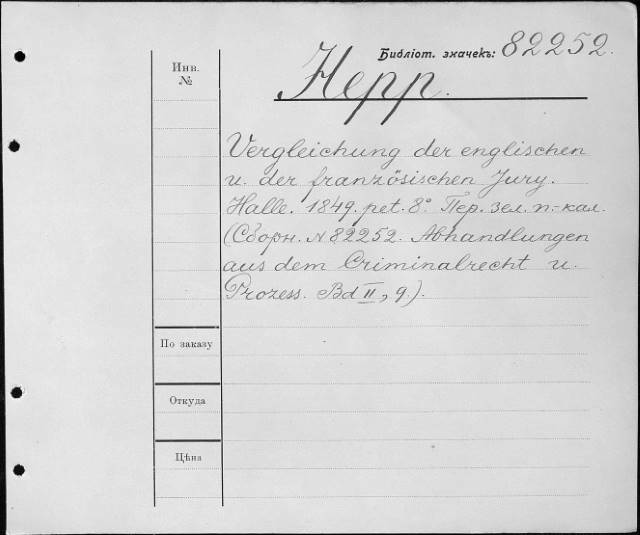 Библіот. значекъ: 82252.
Инв.
№
Hepp.
Vergleichung der englischen
u. der französischen Jury.
Halle. 1849. pet. 8° Пер. зел. п.-кал.
(Сборн. N 82252. Abhandlungen
aus dem Criminalrecht u.
Prozess. Bd II, 9.).
По заказу
Откуда
Цѣна